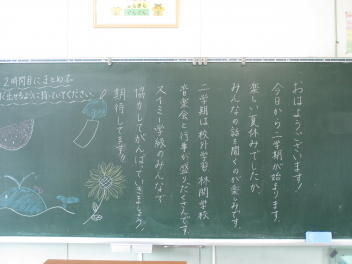 おはようございます!
今日から二学期が始まります。
楽しい夏休みでしたか。
みんなの話を聞くのが楽しみです。
二学期は校外学習、林間学校
音楽会と行事が盛りだくさんです。
スイミー学級のみんなで
協力してがんばっていきましょう。
期待してます!!
2時間目にまとめて
出せるように持っていてください。